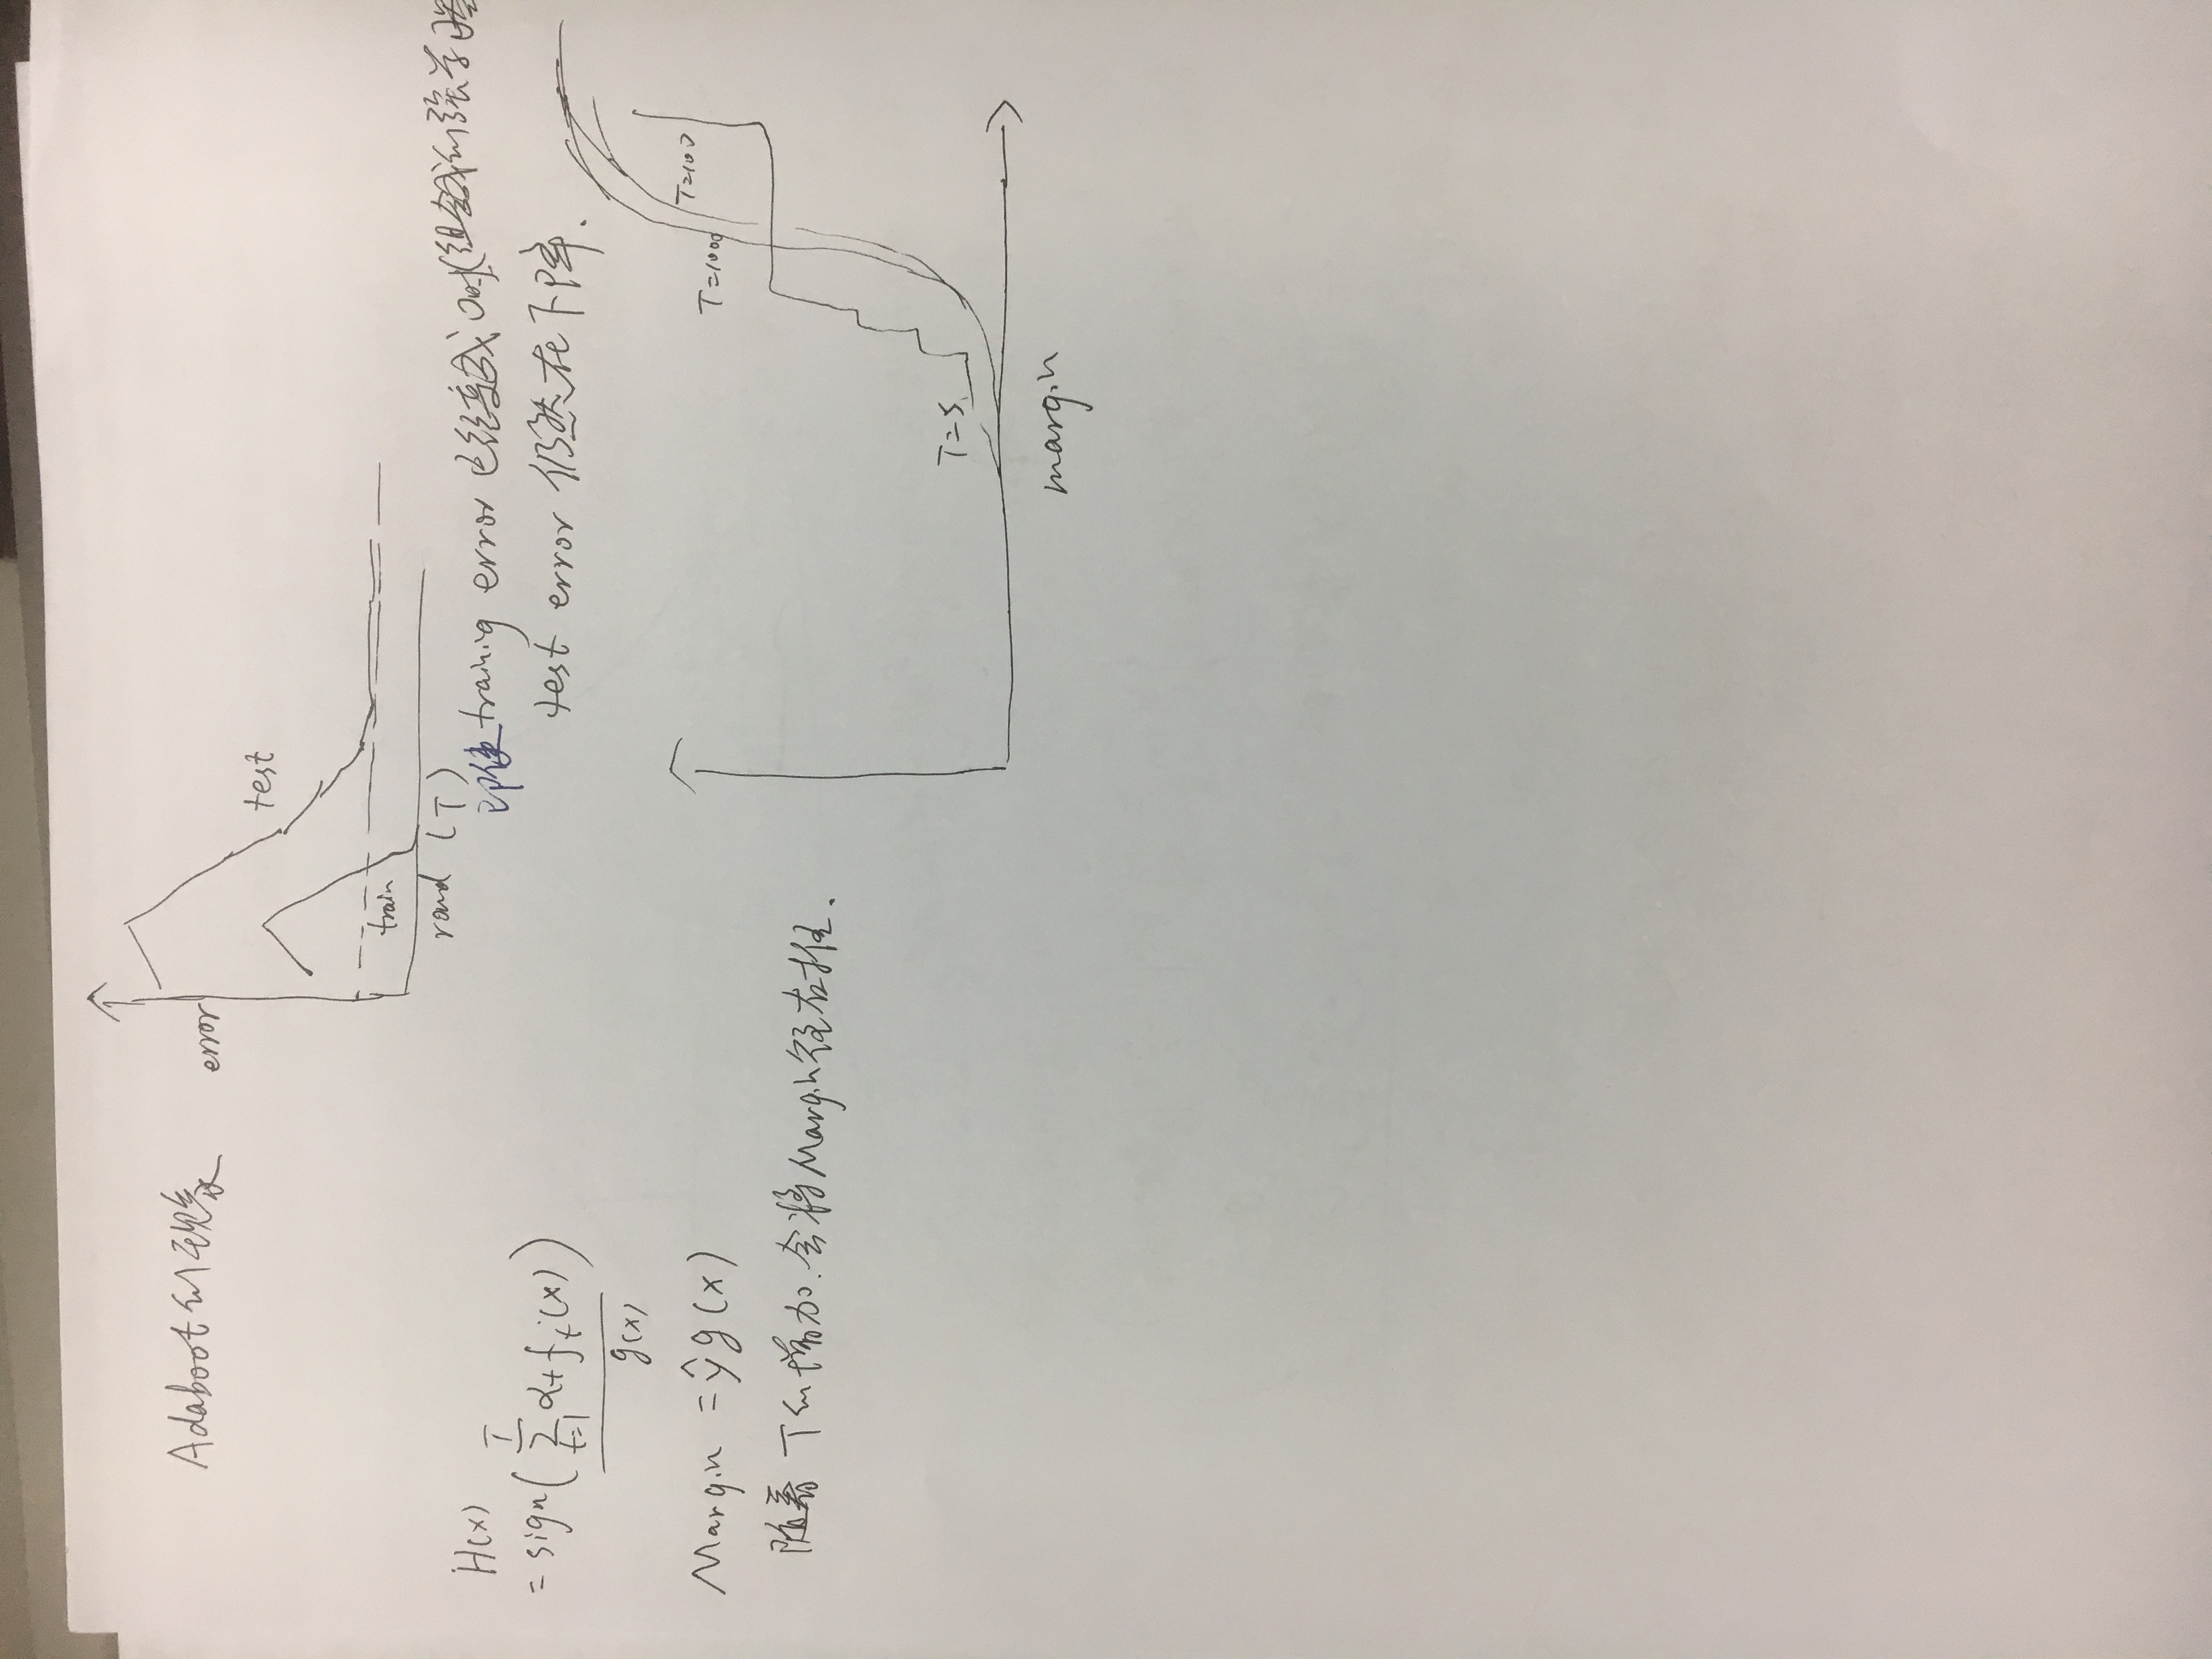 Adaboot的现象
error
test
train
round (T)
即使training error已经变成0时(组合成的强学习器
test error 仍然在下降.
H(x)
= sign(∑_{t=1}^{T} α_t f_t(x))
g(x)
Margin = ŷg(x)
随着T的增加.会将Margin往右推.
T=1000
T=100
T=5
margin